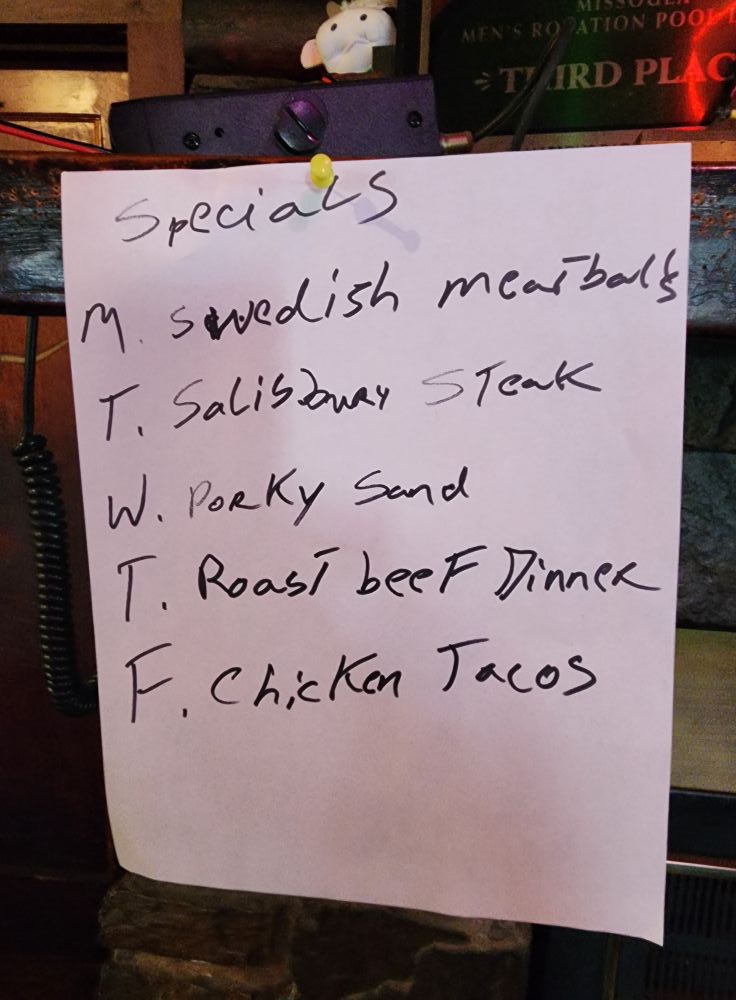 MISSOULA
MEN'S ROTATION POOL
THIRD PLAC
Specials
M. Swedish meatballs
T. Salisbury Steak
W. Porky Sand
T. Roast beef Dinner
F. Chicken Tacos